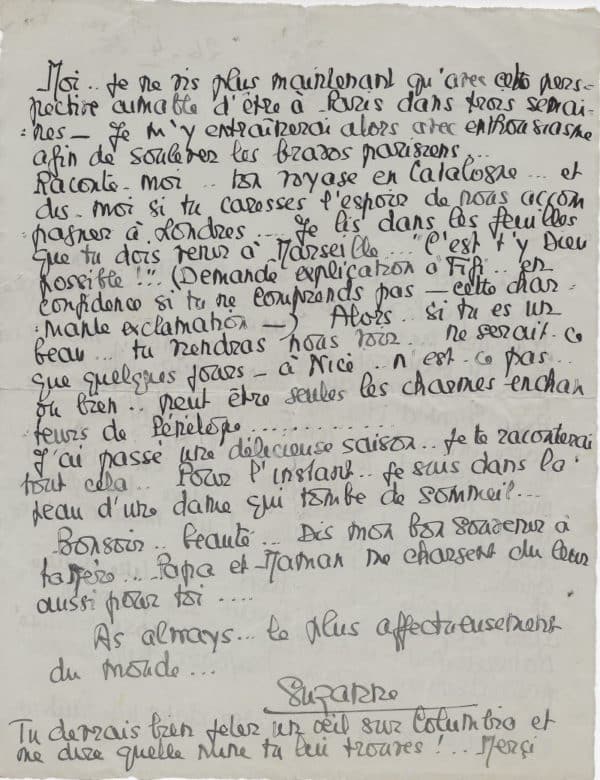 Moi.. Je ne vis plus maintenant qu'avec cette pers=
pective aimable d'être à Paris dans trois semai=
=nes — Je m'y entraînerai alors avec enthousiasme
afin de soulever les bravos parisiens...
Raconte-moi .. ton voyage en Catalogne ... et
dis-moi si tu caresses l'espoir de nous accom
pagner à Londres .... Je lis dans les feuilles
que tu dois venir à Marseille .... "C'est 't'y Dieu
possible!!" (Demande explication à Fifi .. en
confidence si tu ne comprends pas — cette char=
=mante exclamation —) Alors .. si tu es un
beau ... tu viendras nous voir . ne serait-ce
que quelques jours — à Nice .. n'est-ce pas ..
ou bien .. peut être seules les charmes enchan
teurs de Pénélope ............
J'ai passé une délicieuse saison .. Je te raconterai
tout cela .. Pour l'instant .. je suis dans la
peau d'une dame qui tombe de sommeil ...
Bonsoir .. beauté ... Dis mon bon souvenir à
ta ... Papa et Maman me chargent du leur
aussi pour toi ....
As always ... le plus affectueusement
du monde ...
Suzanne
Tu devrais bien jeter un œil sur Columbia et
me dire quelle mine tu lui trouves! .. Merçi